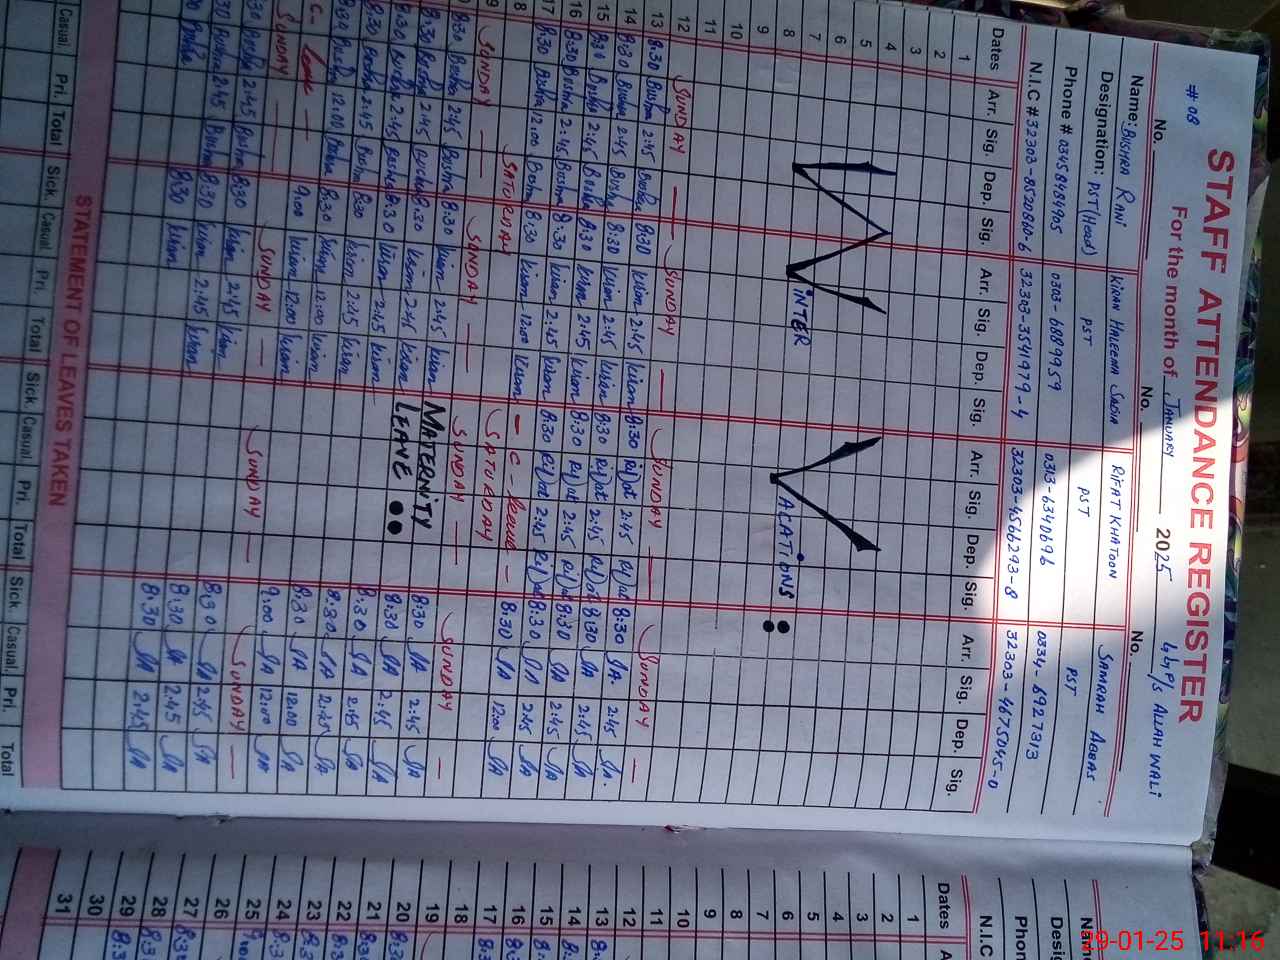 # 08
STAFF ATTENDANCE REGISTER
For the month of January 2025 GGP/S ALLAH WALI
No. No. No.
Name: BUSHRA RANI KIRAN HALEEMA SADIA RIFAT KHATOON SAMRAH ABBAS
Designation: PST (Head) PST PST PST
Phone # 03458484905 0303-6889959 0313-6340696 0334-6921313
N.I.C # 32303-8520860-6 32303-3541979-4 32303-4566293-8 32303-4675045-0
Dates Arr. Sig. Dep. Sig. Arr. Sig. Dep. Sig. Arr. Sig. Dep. Sig. Arr. Sig. Dep. Sig.
1
2
3
4
5
6
7
8
9
10
11
WINTER VACATIONS
12 SUNDAY SUNDAY SUNDAY SUNDAY
13 8:30 Bushra 2:45 Bushra 8:30 Kiran 2:45 Kiran 8:30 Rifat 2:45 Rifat 8:30 SA 2:45 SA
14 8:30 Bushra 2:45 Bushra 8:30 Kiran 2:45 Kiran 8:30 Rifat 2:45 Rifat 8:30 SA 2:45 SA
15 8:30 Bushra 2:45 Bushra 8:30 Kiran 2:45 Kiran 8:30 Rifat 2:45 Rifat 8:30 SA 2:45 SA
16 8:30 Bushra 2:45 Bushra 8:30 Kiran 2:45 Kiran 8:30 Rifat 2:45 Rifat 8:30 SA 2:45 SA
17 8:30 Bushra 12:00 Bushra 8:30 Kiran 12:00 Kiran C-leave 8:30 SA 12:00 SA
8 SATURDAY SATURDAY
9 SUNDAY SUNDAY SUNDAY SUNDAY
8:30 Bushra 2:45 Bushra 8:30 Kiran 2:45 Kiran 8:30 SA 2:45 SA
8:30 Bushra 2:45 Bushra 8:30 Kiran 2:45 Kiran 8:30 SA 2:45 SA
8:30 Bushra 2:45 Bushra 8:30 Kiran 2:45 Kiran 8:30 SA 2:45 SA
8:30 Bushra 2:45 Bushra 8:30 Kiran 2:45 Kiran 8:30 SA 2:45 SA
8:30 Bushra 12:00 Bushra 8:30 Kiran 12:00 Kiran 8:30 SA 12:00 SA
MATERNITY
LEAVE
C- Leave 9:00 Kiran 12:00 Kiran 9:00 SA 12:00 SA
SUNDAY SUNDAY SUNDAY SUNDAY
Bushra 2:45 Bushra 8:30 Kiran 2:45 Kiran 8:30 SA 2:45 SA
Bushra 2:45 Bushra 8:30 Kiran 2:45 Kiran 8:30 SA 2:45 SA
Bushra 8:30 Kiran 8:30 SA 2:45 SA
STATEMENT OF LEAVES TAKEN
Casual. Pri. Total Sick. Casual. Pri. Total Sick Casual. Pri. Total Sick. Casual. Pri. Total
Dates
1
2
3
4
5
6
7
8
9
10
11
12
13
14
15
16
17
18
19
20
21
22
23
24
25
26
27
28
29
30
31
29-01-25 11:16